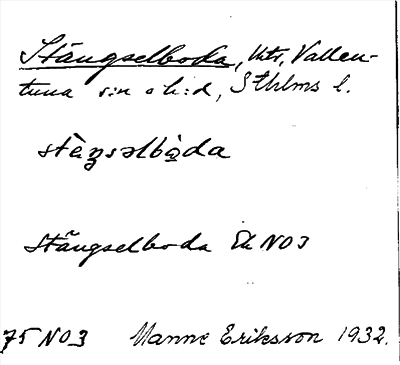 Stängselboda, htr, Vallen-
tuna s:n o h:d, Sthlms l.
stäŋsəlbòda
Stängselboda Ek NO3
75 NO3 Manne Eriksson 1932.